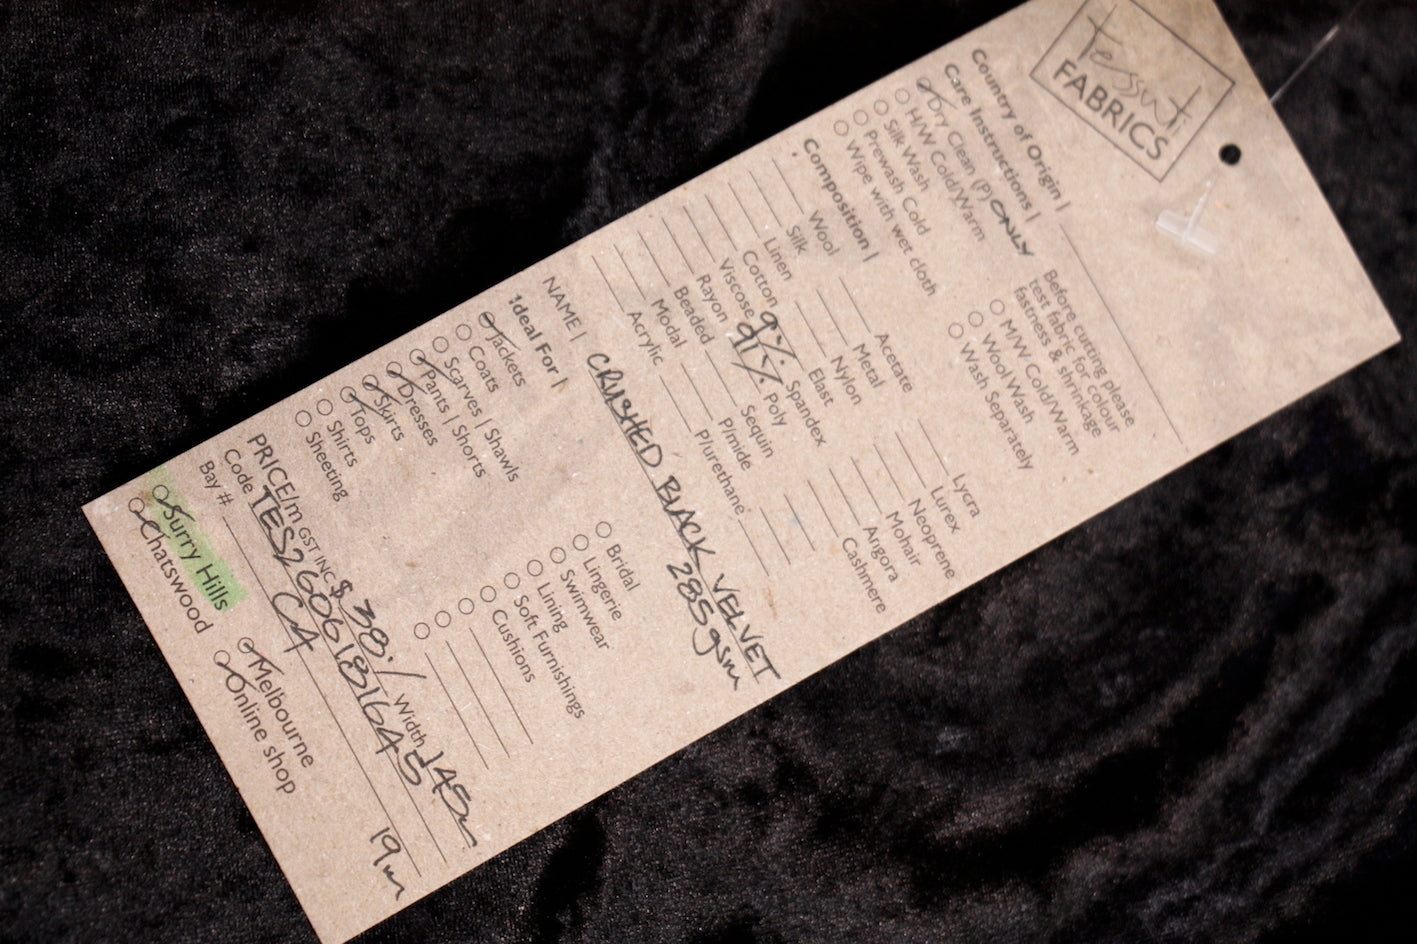 Tessuti
FABRICS
Country of Origin |
Care Instructions |
Dry Clean (P) ONLY
H/W Cold/Warm
Silk Wash
Prewash Cold
Wipe with wet cloth
Before cutting please
test fabric for colour
fastness & shrinkage
M/W Cold/Warm
Wool Wash
Wash Separately
Composition |
Wool
Silk
Linen
Cotton
Viscose
Rayon
Beaded
Modal
Acrylic
Acetate
Metal
Nylon
Elast
9% Spandex
91% Poly
Sequin
P/mide
P/urethane
Lycra
Lurex
Neoprene
Mohair
Angora
Cashmere
NAME | CRUSHED BLACK VELVET
285gsm
Ideal For |
Jackets
Coats
Scarves | Shawls
Pants | Shorts
Dresses
Skirts
Tops
Shirts
Sheeting
Bridal
Lingerie
Swimwear
Lining
Soft Furnishings
Cushions
PRICE/m GST INC $38./ Width 148
Code TES2606181648
Bay # CA
19m
Surry Hills
Chatswood
Melbourne
Online shop